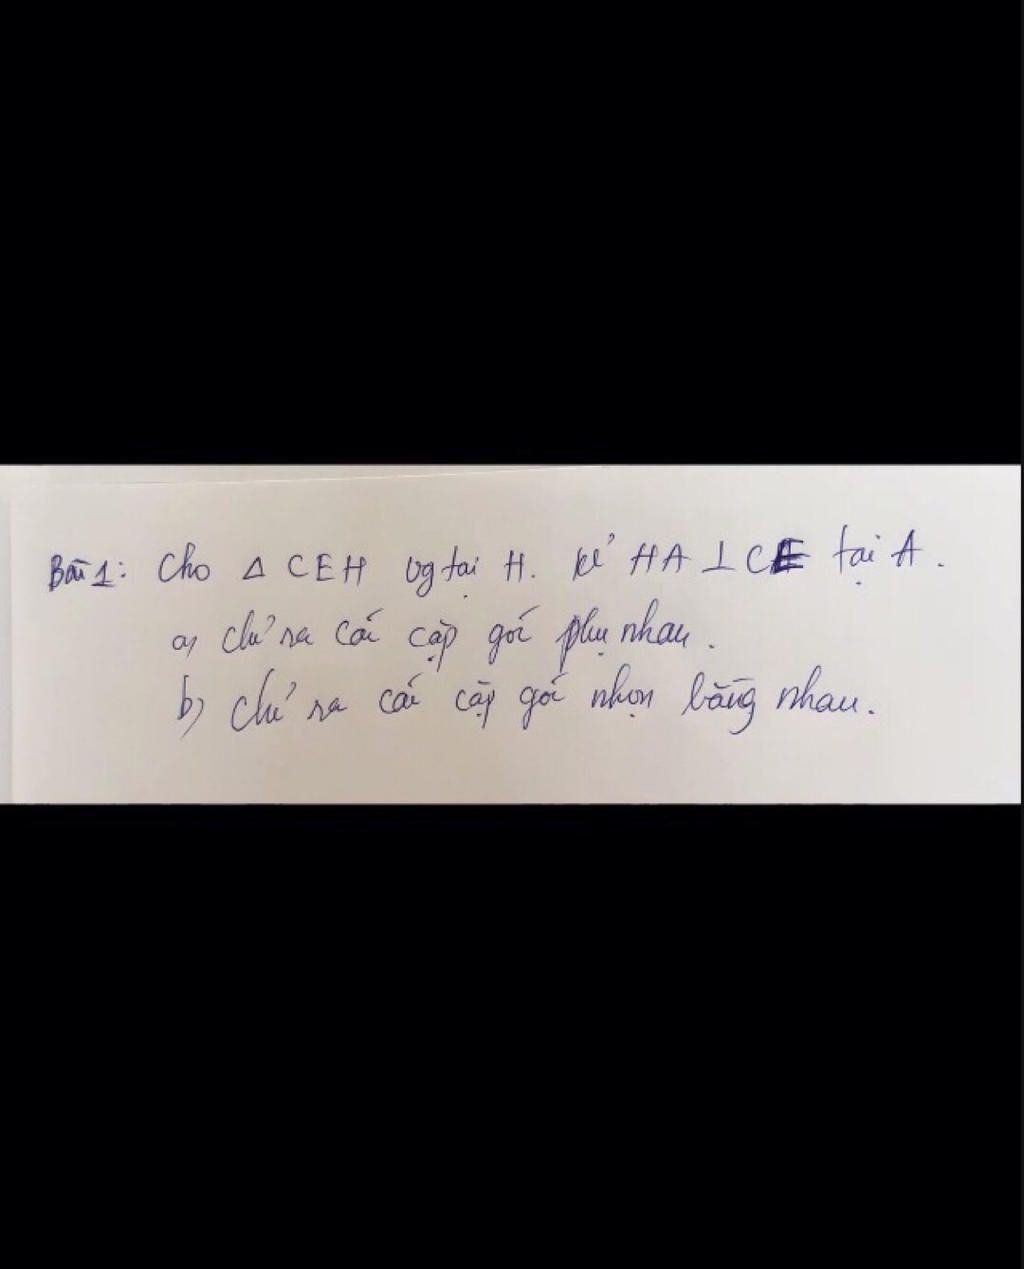 Bài 1: Cho Δ CEH vg tại H. kẻ HA ⊥ CE tại A.
a) chỉ ra các cặp góc phụ nhau.
b) chỉ ra các cặp góc nhọn bằng nhau.